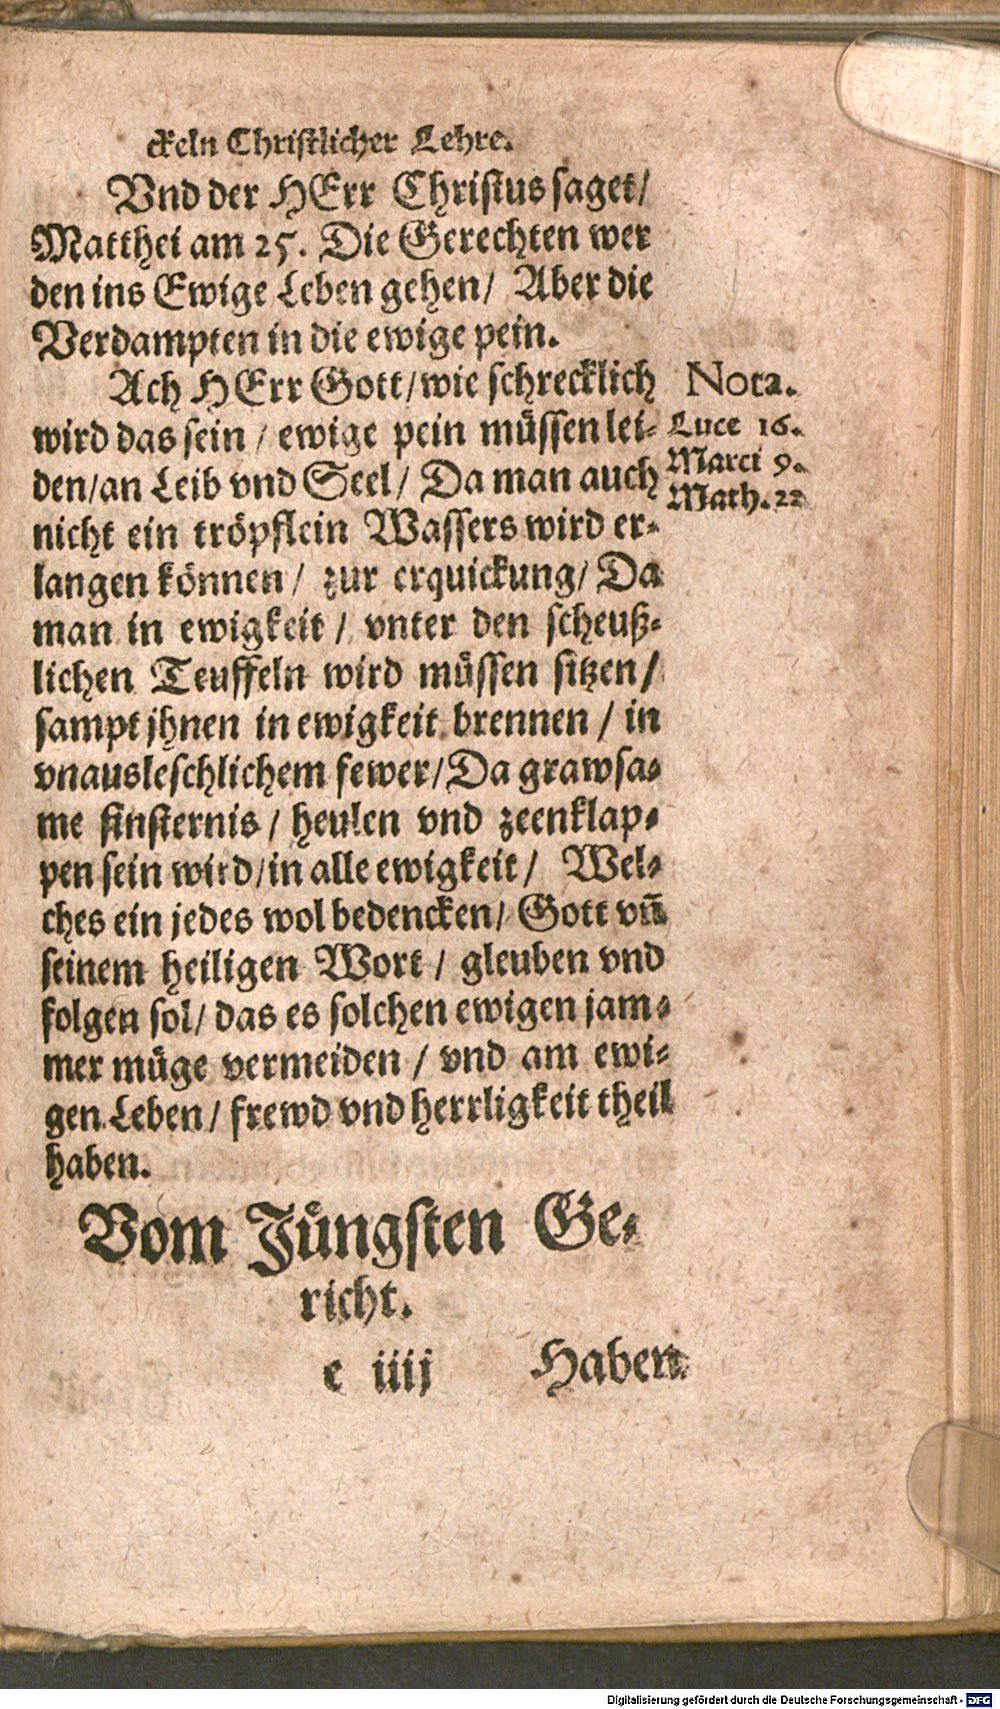 ckeln Christlicher Lehre.
Vnd der HErr Christus saget/
Matthei am 25. Die Gerechten wer
den ins Ewige Leben gehen/ Aber die
Verdampten in die ewige pein.
Ach HErr Gott/wie schrecklich
Nota.
wird das sein / ewige pein müssen lei-
Luce 16.
den/an Leib vnd Seel/ Da man auch
Marci 9.
Math. 22
nicht ein tröpflein Wassers wird er-
langen können / zur erquickung/ Da
man in ewigkeit / vnter den scheuß-
lichen Teuffeln wird müssen sitzen/
sampt jhnen in ewigkeit brennen / in
vnausleschlichem fewer/Da grawsa-
me finsternis / heulen vnd zeenklap-
pen sein wird/in alle ewigkeit/ Wel-
ches ein jedes wol bedencken/ Gott vn̄
seinem heiligen Wort / gleuben vnd
folgen sol/ das es solchen ewigen jam-
mer müge vermeiden / vnd am ewi-
gen Leben / frewd vnd herrligkeit theil
haben.
Vom Jüngsten Ge-
richt.
e iiij Haben
Digitalisierung gefördert durch die Deutsche Forschungsgemeinschaft - DFG